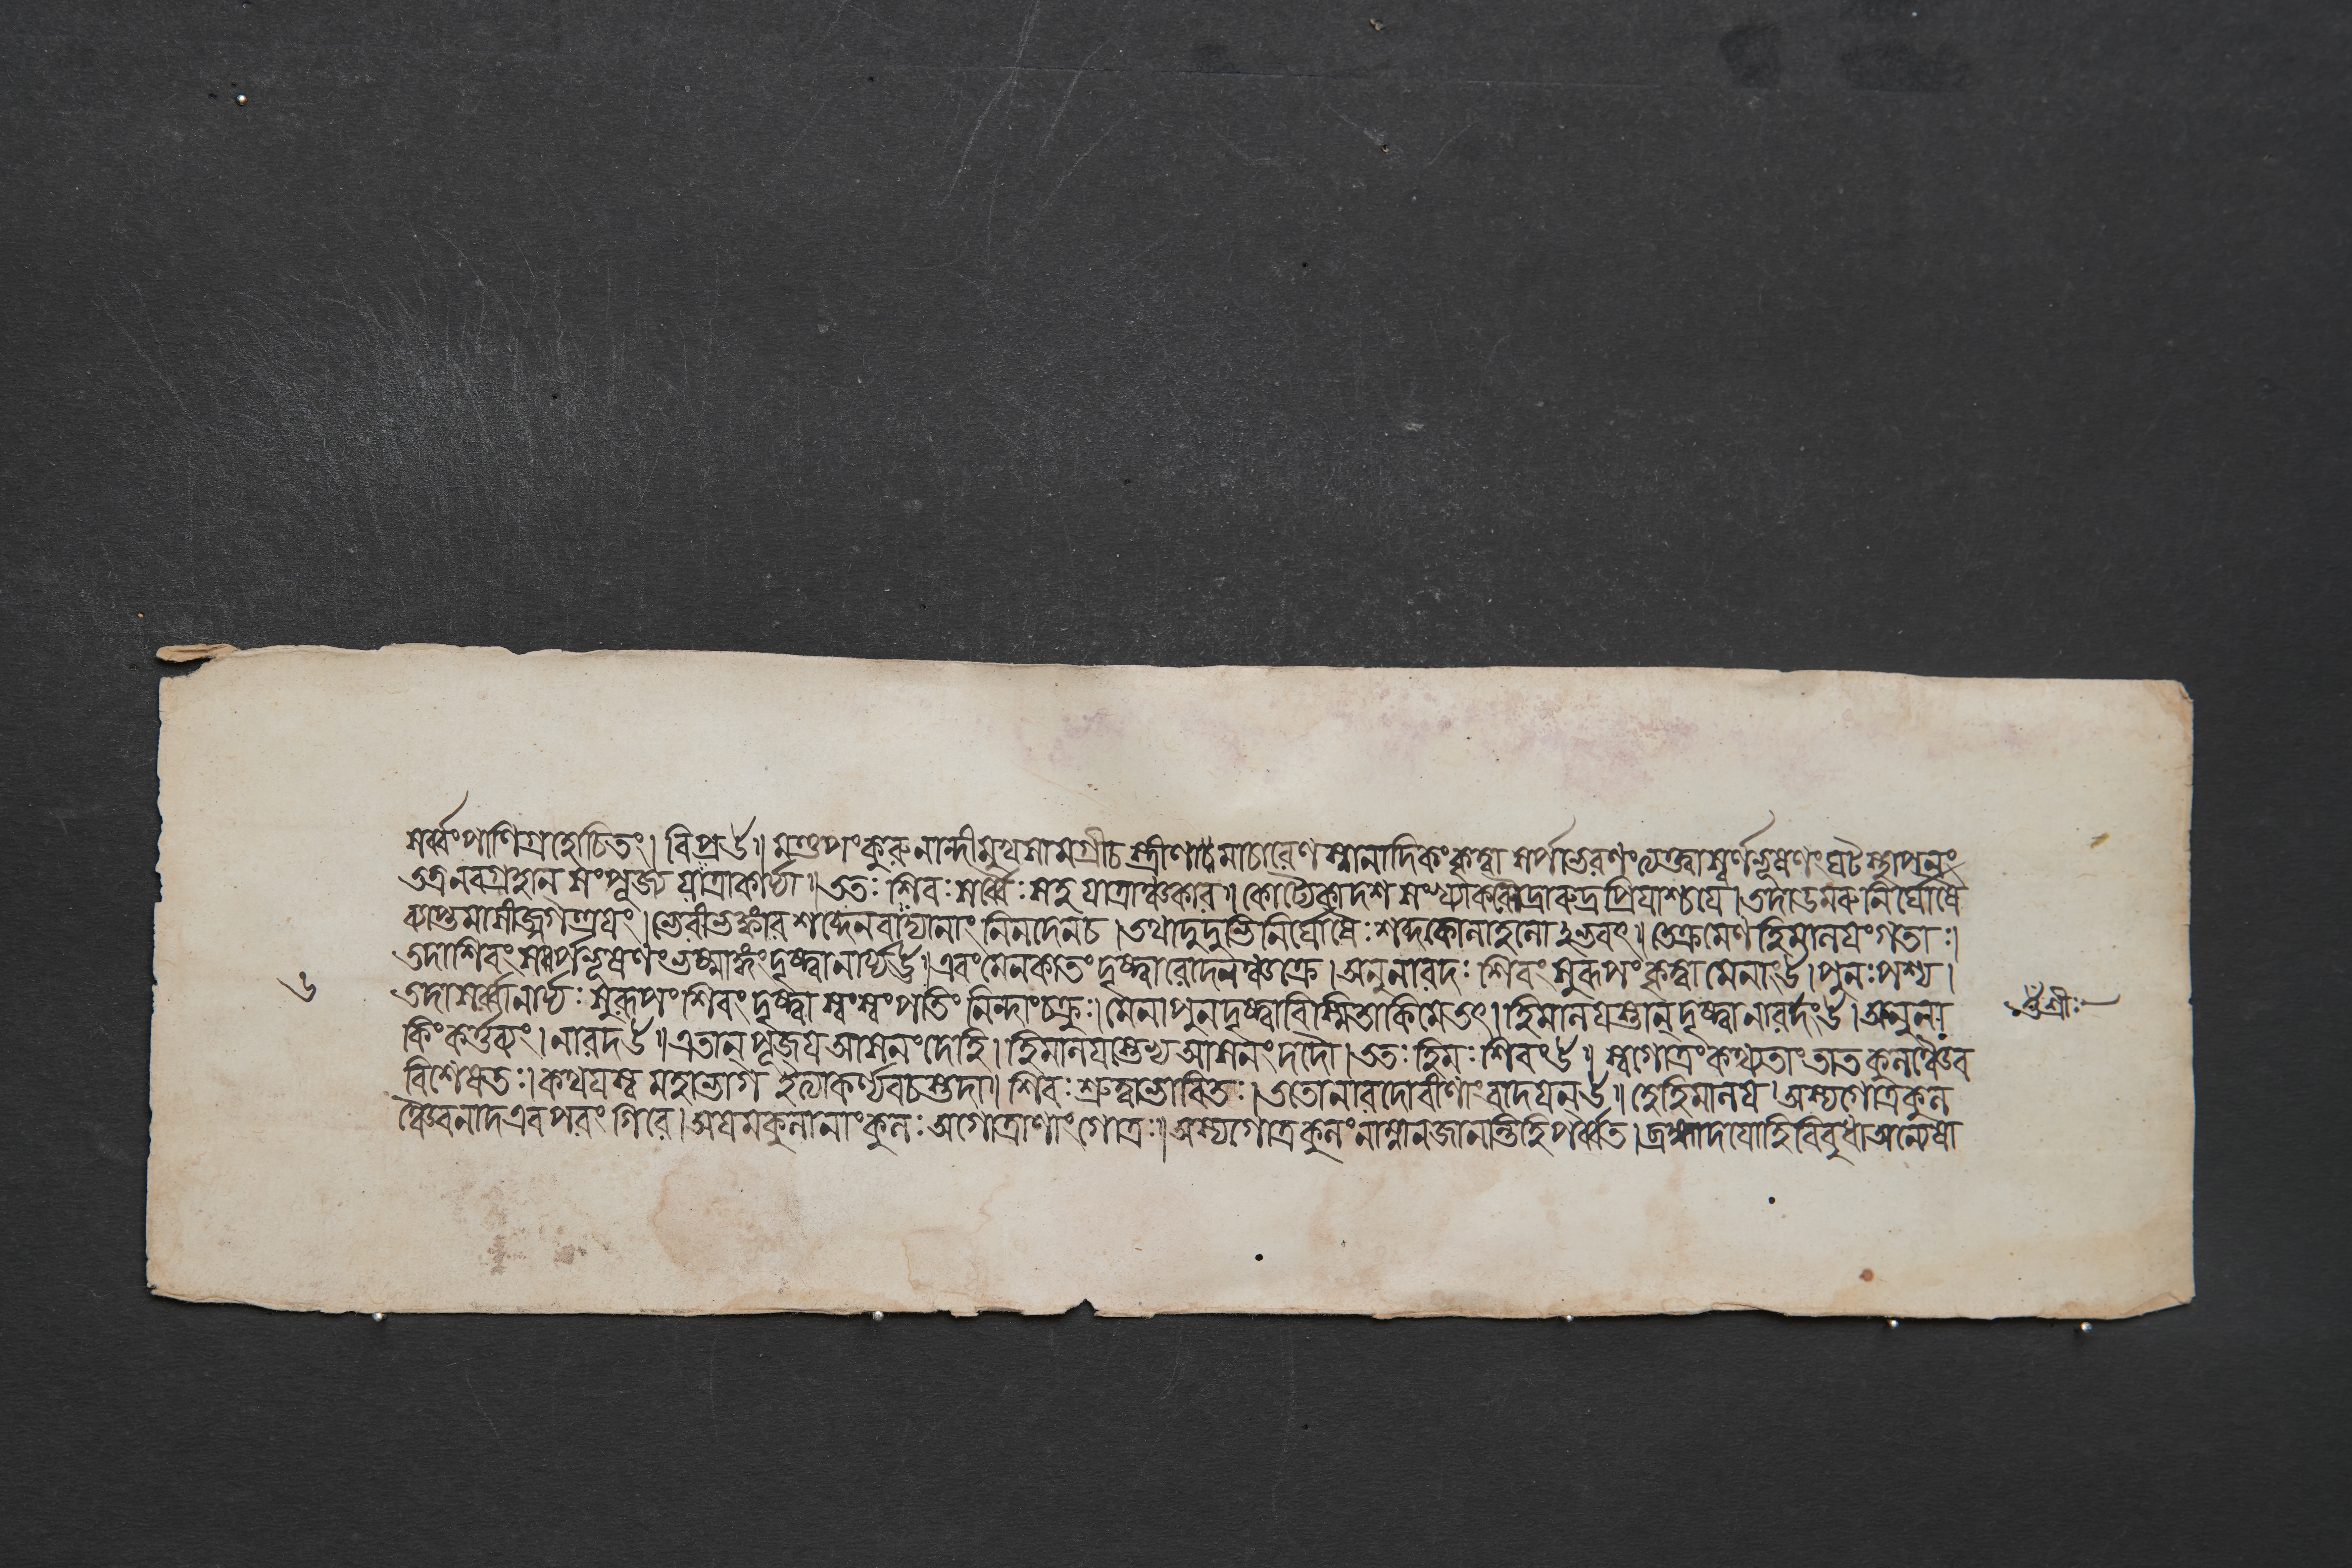 সর্ব্বং পাণিগ্রহোচিতং। বিপ্র উ॥ মণ্ডপং কুরু নান্দীমুখসামগ্রীচ স্ত্রীণাং চমাচারেণ স্নানাদিকং কৃত্বা সর্পাভরণং ত্যক্ত্বা স্বর্ণভূষণং ঘটস্থাপনং
তত্র নবগ্রহান্ সংপূজ্য যাত্রাকার্য্যা॥ ততঃ শিবঃ সর্ব্বৈঃ সহ যাত্রাঞ্চকার॥ কোট্যৈকাদশ সংখ্যাকা রুদ্রপ্রিয়াশ্চ যে। তদা ডমরুনির্ঘোষে
ব্যাপ্তমাসীজ্জগত্ত্রয়ং। ভেরীভঙ্কারশব্দেন বাদ্যানাং নিনদেন চ। তথা দুদুন্দুভিনির্ঘোষৈঃ শব্দকোলাহলোঽভবৎ॥ তে ক্রমেণ হিমালয়ং গতাঃ।
তদা শিবং সর্পভূষণং ভস্মাঙ্গং দৃষ্ট্বা নার্য্য উ॥ এবং মেনকা তং দৃষ্ট্বা রোদনঞ্চক্রে। অনু নারদঃ শিবং সুরূপং কৃত্বা মেনাং উ। পুনঃ পশ্য।
৬ তদা সর্ব্বা নার্য্যঃ সুরূপং শিবং দৃষ্ট্বা স্বং স্বং পতিং নিন্দাং চক্রুঃ। মেনা পুন দৃষ্ট্বা বিস্মিতা কিমেতৎ। হিমালয়স্তান্ দৃষ্ট্বা নারদং উ। অনুনা ওঁশ্রীঃ
কিং কর্ত্তব্যং। নারদ উ॥ এতান্ পূজয় আসনং দেহি। হিমালয়স্তেভ্য আসনং দদৌ। ততঃ হিমঃ শিবং উ॥ স্বগোত্রং কথ্যতাং তাত কুলঞ্চৈব
বিশেষতঃ। কথয়স্ব মহাভাগ ইত্যাকর্ণ্য বচস্তদা॥ শিবঃ শ্রুত্বা ভাবিতঃ। ততো নারদো বীণাং বাদয়ন্ উ॥ হে হিমালয়ে অস্য গোত্রকুল
ঞ্চৈব নাদ এব পরং গিরে। অয়মকুলানাং কুলঃ অগোত্রাণাং গোত্রঃ॥ অস্য গোত্রকুলং নাম্না ন জানন্তি হি পর্ব্বত। ব্রহ্মাদয়ো হি বিবুধা অন্যেষা